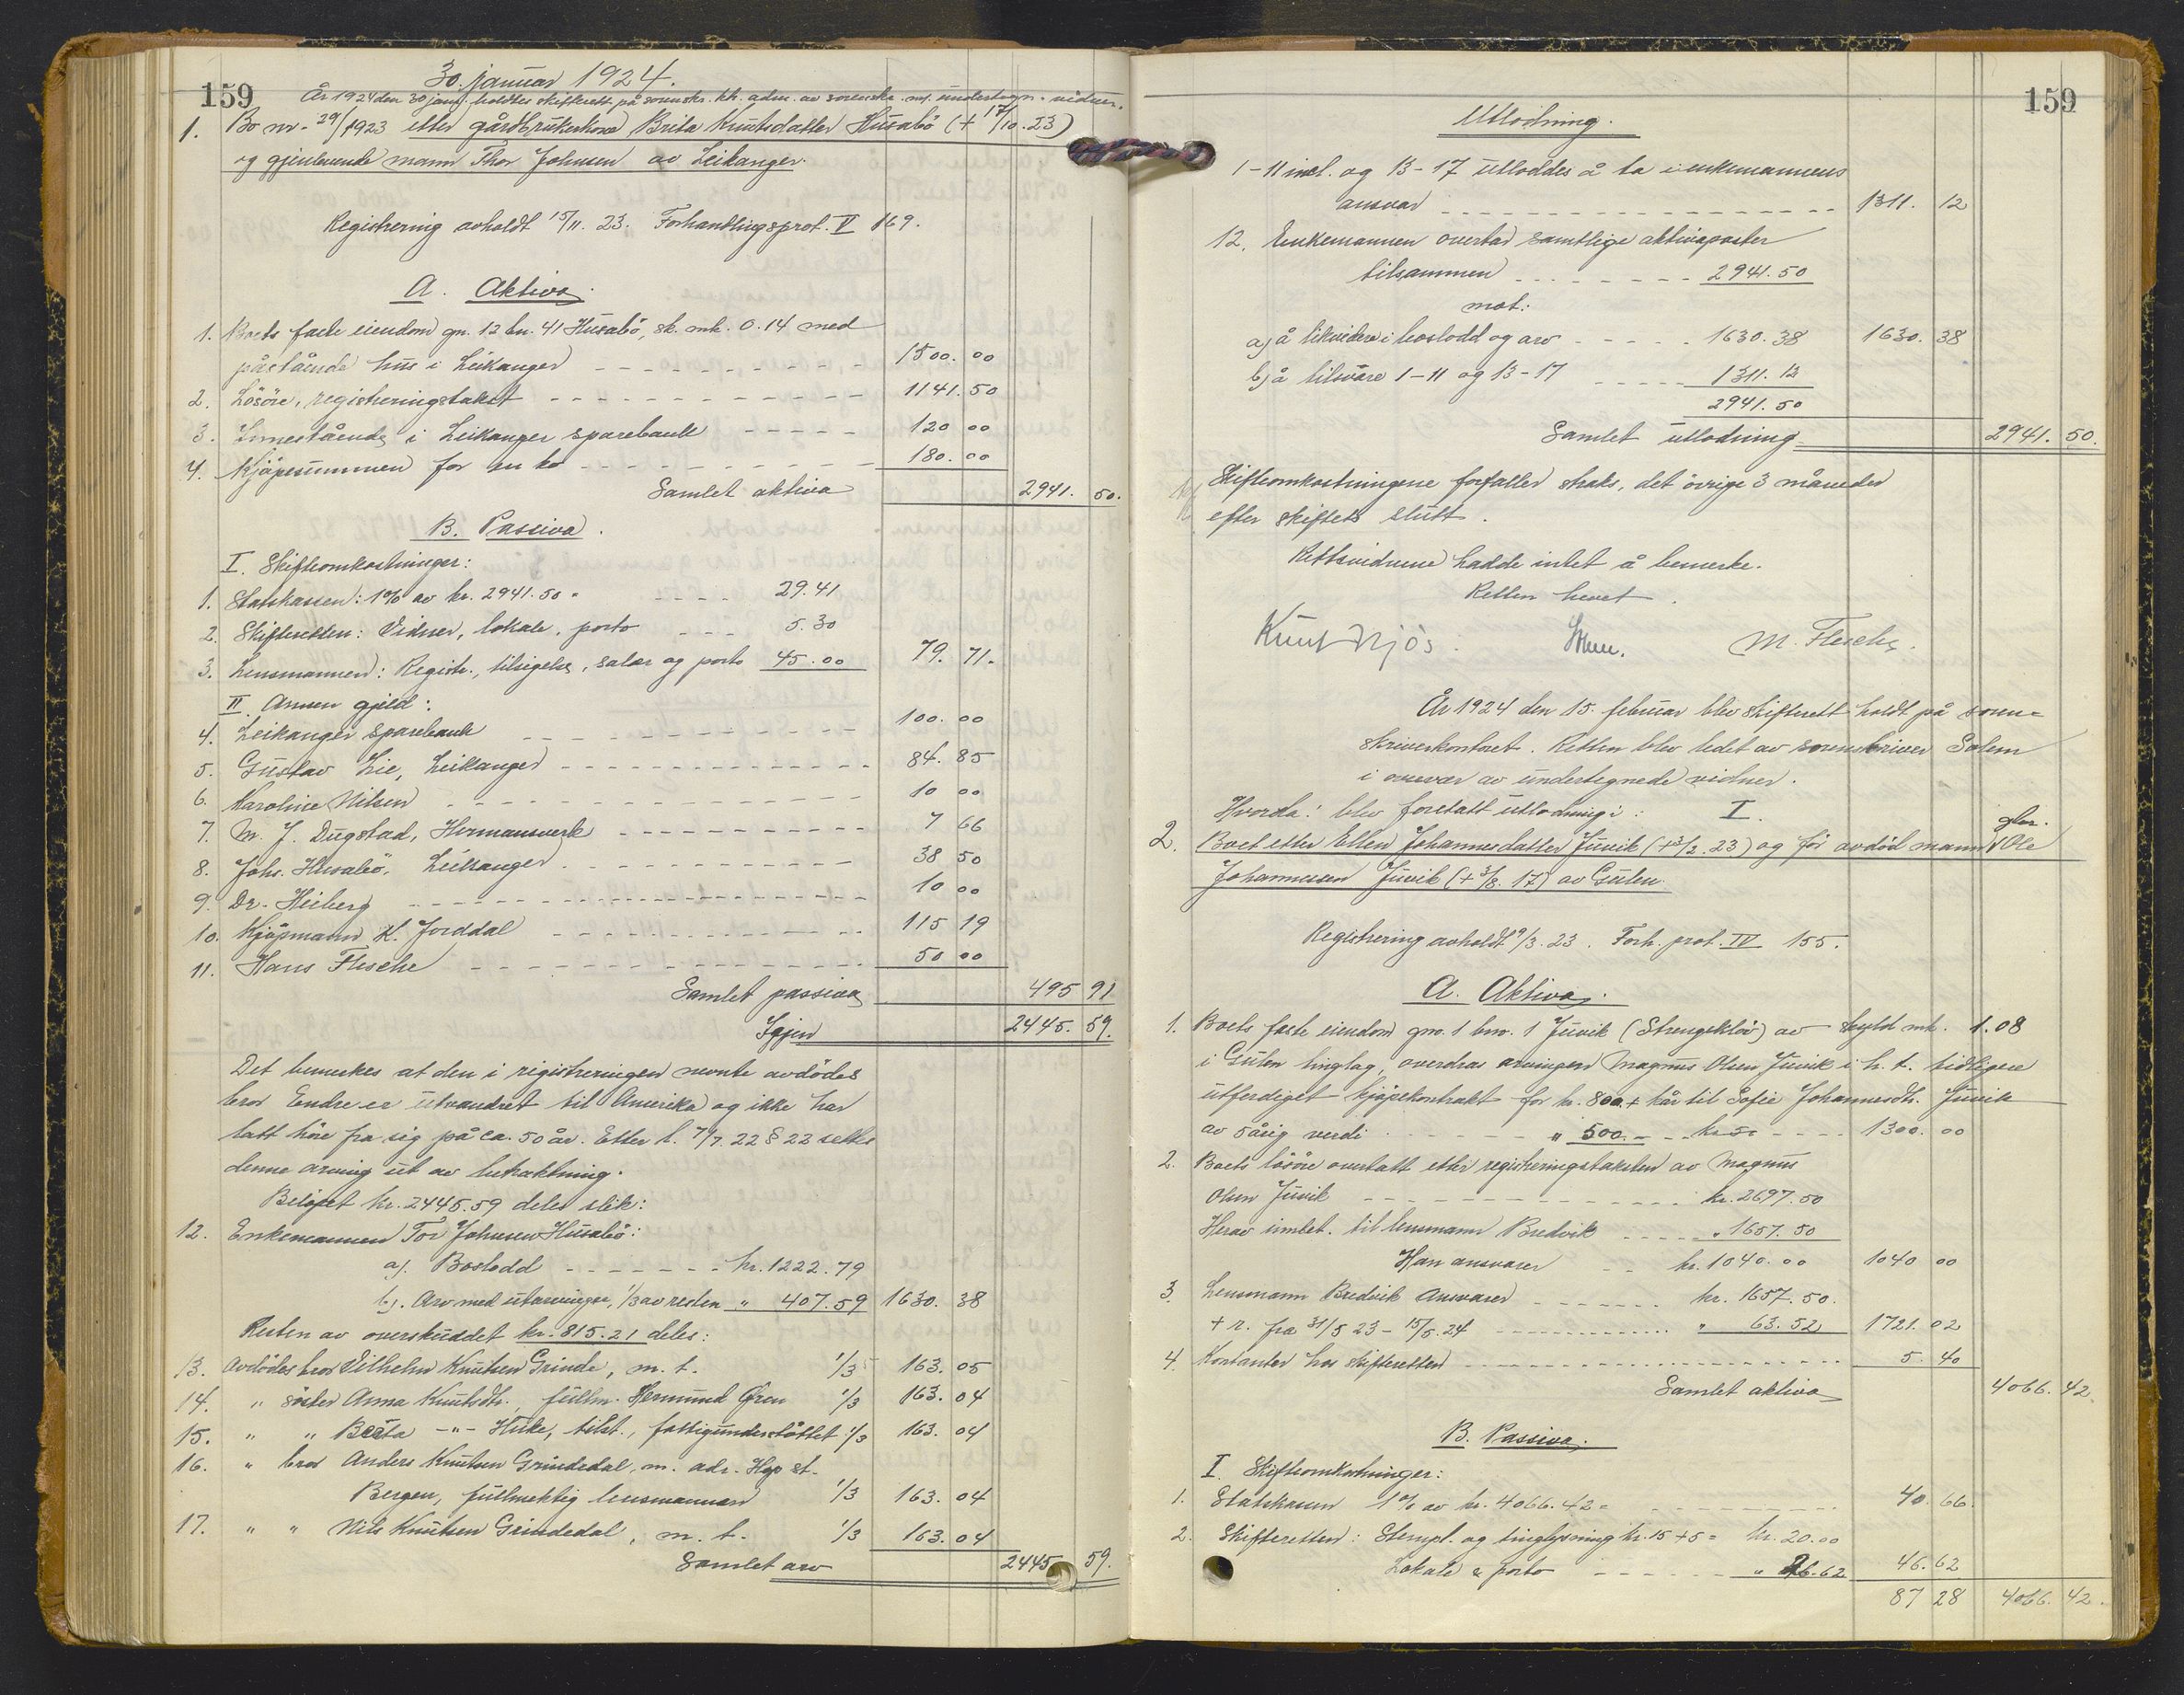 159
30. januar 1924.
År 1924 den 30 janr. holdtes skifterett på sorenskr. kt. adm. av sorenskr. m. undertegn. vidner.
1. Bo nr. 29/1923 etter gårdbrukerkone Brita Knutsdatter Husabö (+ 17/10.23)
og gjenlevende mann Thor Johnsen av Leikanger.
Registrering avholdt 15/11. 23. Forhandlingsprot. V 169.
A. Aktiva.
1. Boets faste eiendom gn. 12 bn. 41 Husabö, sk. mk. 0.14 med
påstående hus i Leikanger 1500. 00
2. Lösöre, registreringstakst 1141. 50
3. Innestående i Leikanger sparebank 120 00
4. Kjöpesummen for en ko 180. 00
Samlet aktiva 2941. 50.
B. Passiva.
I. Skifteomkostninger:
1. Statskassen: 1% av kr. 2941.50 = 29.41
2. Skifteretten: Vidner, lokale, porto 5.30
3. Lensmannen: Registr., tilsigelse, salær og porto 45.00 79. 71.
II. Annen gjeld:
4. Leikanger sparebank 100. 00
5. Gustav Lie, Leikanger 84. 85
6. Karoline Nilsen 10 00
7. M. J. Dugstad, Hermansverk 7 66
8. Johs. Husabö, Leikanger 38 50
9. Dr. Heiberg 10 00
10. Kjöpmann K. Jorddal 115 19
11. Hans Flesche 50 00
Samlet passiva 495 91
Igjen 2445. 59.
Det bemerkes at den i registreringen nevnte avdödes
bror Endre er utvandret til Amerika og ikke har
latt höre fra sig på ca. 50 år. Etter l. 7/7. 22 § 22 settes
denne arving ut av betraktning.
Belöpet kr. 2445.59 deles slik:
12. Enkemannen Tor Johnsen Husabö:
a). Boslodd kr. 1222.79
b). Arv med utarvinger, 1/3 av resten " 407.59 1630. 38
Resten av overskuddet kr. 815.21 deles:
13. Avdödes bror Vilhelm Knutsen Grinde, m. t. 1/5 163. 05
14. " söster Anna Knutsdtr., fullm. Hermund Øren 1/5 163. 04
15. " " Berta -"- Huke, tilst., fattigunderstöttet 1/5 163. 04
16. " bror Anders Knutsen Grindedal, m. adr. Hop st.
Bergen, fullmektig lensmannen 1/5 163. 04
17. " " Nils Knutsen Grindedal, m. t. 1/5 163. 04
Samlet arv 2445 59.
159
Utlodning.
1-11 incl. og 13-17 utloddes å ta i enkemannens
ansvar 1311. 12
12. Enkemannen overtar samtlige aktivaposter
tilsammen 2941.50
mot:
a) å likvidere i boslodd og arv 1630.38 1630. 38
b) å tilsvare 1-11 og 13-17 1311.12
2941.50
Samlet utlodning 2941. 50.
Skifteomkostningene forfaller straks, det övrige 3 måneder
efter skiftets slutt.
Rettsvidnene hadde intet å bemerke.
Retten hevet.
Knut Njös. M. Flesche.
År 1924 den 15. februar blev skifterett holdt på soren=
skriverkontoret. Retten blev ledet av sorenskriver Salem
i overvær av undertegnede vidner.
Hvorda: blev foretatt utlodning i: I.
2. Boet etter Ellen Johannesdatter Juvik (+ 3/2. 23) og för avdöd mann gbr. Ole
Johannesen Juvik (+ 3/8. 17) av Gulen.
Registrering avholdt 9/3. 23. Forh. prot. IV 155.
A. Aktiva.
1. Boets faste eiendom gnr. 1 bnr. 1 Juvik (Strengeklöv) av skyld mk. 1.08
i Gulen tinglag, overdras arvingen Magnus Olsen Juvik i h. t. tidligere
utferdiget kjöpekontrakt for kr. 800 + kår til Sofie Johannesdtr. Juvik
av 5årig verdi " 500. 1300. 00
2. Boets lösöre overtatt etter registreringstaksten av Magnus
Olsen Juvik kr. 2697.50
Herav innbet. til lensmann Bredvik " 1657.50
Han ansvarer kr. 1040.00 1040 00
3. Lensmann Bredvik ansvarer kr. 1657.50.
+ r. fra 31/5 23 - 15/5. 24 " 63.52 1721. 02
4. Kontanter hos skifteretten 5. 40
Samlet aktiva 4066. 42.
B. Passiva.
I. Skifteomkostninger:
1. Statskassen 1% av kr. 4066.42 = 40. 66.
2. Skifteretten: Stempl. og tinglysning kr. 15 + 5 = kr. 20.00
Lokale & porto " 26.62 46. 62
87 28 4066. 42.